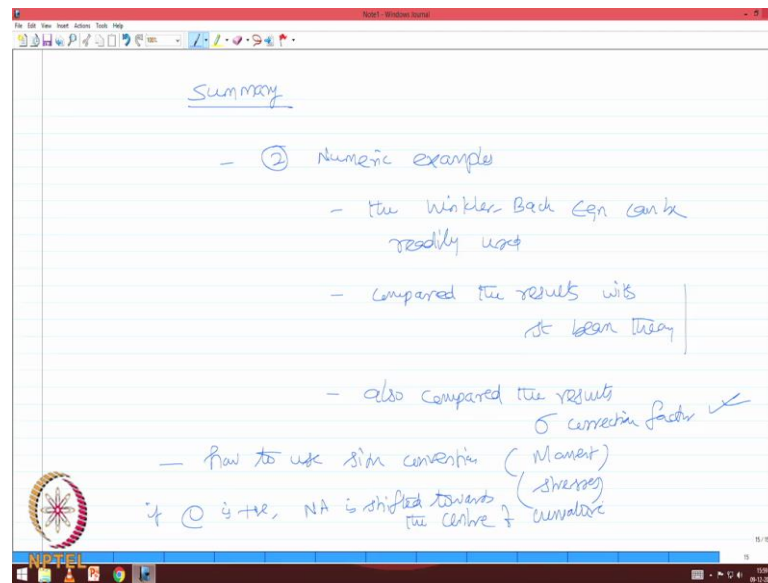 Note1 - Windows Journal
File Edit View Insert Actions Tools Help
Summary
- ② Numeric examples
- the Winkler-Bach Eqn can be
readily used
- compared the results with
st beam theory
- also compared the results
σ correction factor ✓
- how to use sign convention (Moment)
(stresses)
if e is +ve, NA is shifted towards
the centre of curvature
NPTEL
15/15
15